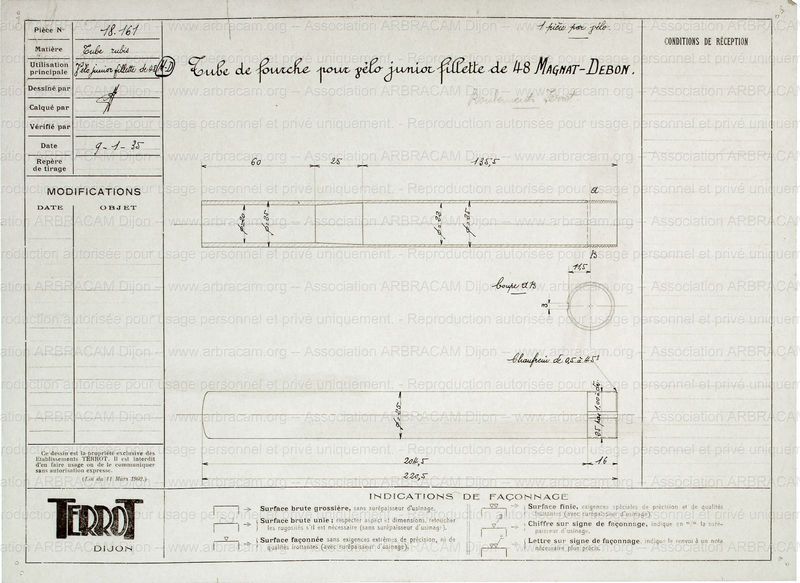 Pièce N° 18.161
Matière Tube rubis
Utilisation principale Vélo junior fillette de 48 M-D
Dessiné par
Calqué par
Vérifié par
Date 9-1-35
Repère de tirage
MODIFICATIONS
DATE OBJET
1 pièce par vélo.
CONDITIONS DE RÉCEPTION
Tube de fourche pour vélo junior fillette de 48 MAGNAT-DEBON.
60 25 135,5
a
B
11,5
Coupe AB
3
Chanfrein de 0,5 à 45°
204,5 16
220,5
Ce dessin est la propriété exclusive des
Etablissements TERROT. Il est interdit
d'en faire usage ou de le communiquer
sans autorisation expresse.
(Loi du 11 Mars 1902.)
TERROT
DIJON
INDICATIONS DE FAÇONNAGE
Surface brute grossière, sans surépaisseur d'usinage.
Surface brute unie; respecter aspect et dimensions, retoucher
les rugosités s'il est nécessaire (sans surépaisseur d'usinage).
Surface façonnée sans exigences extrêmes de précision, ni de
qualités frottantes (avec surépaisseur d'usinage).
Surface finie, exigences spéciales de précision et de qualités
frottantes (avec surépaisseur d'usinage).
Chiffre sur signe de façonnage, indique en m/m la surépaisseur d'usinage.
Lettre sur signe de façonnage, indique le renvoi à un nota
nécessaire plus précis.
www.arbracam.org – Association ARBRACAM Dijon
Reproduction autorisée pour usage personnel et privé uniquement.